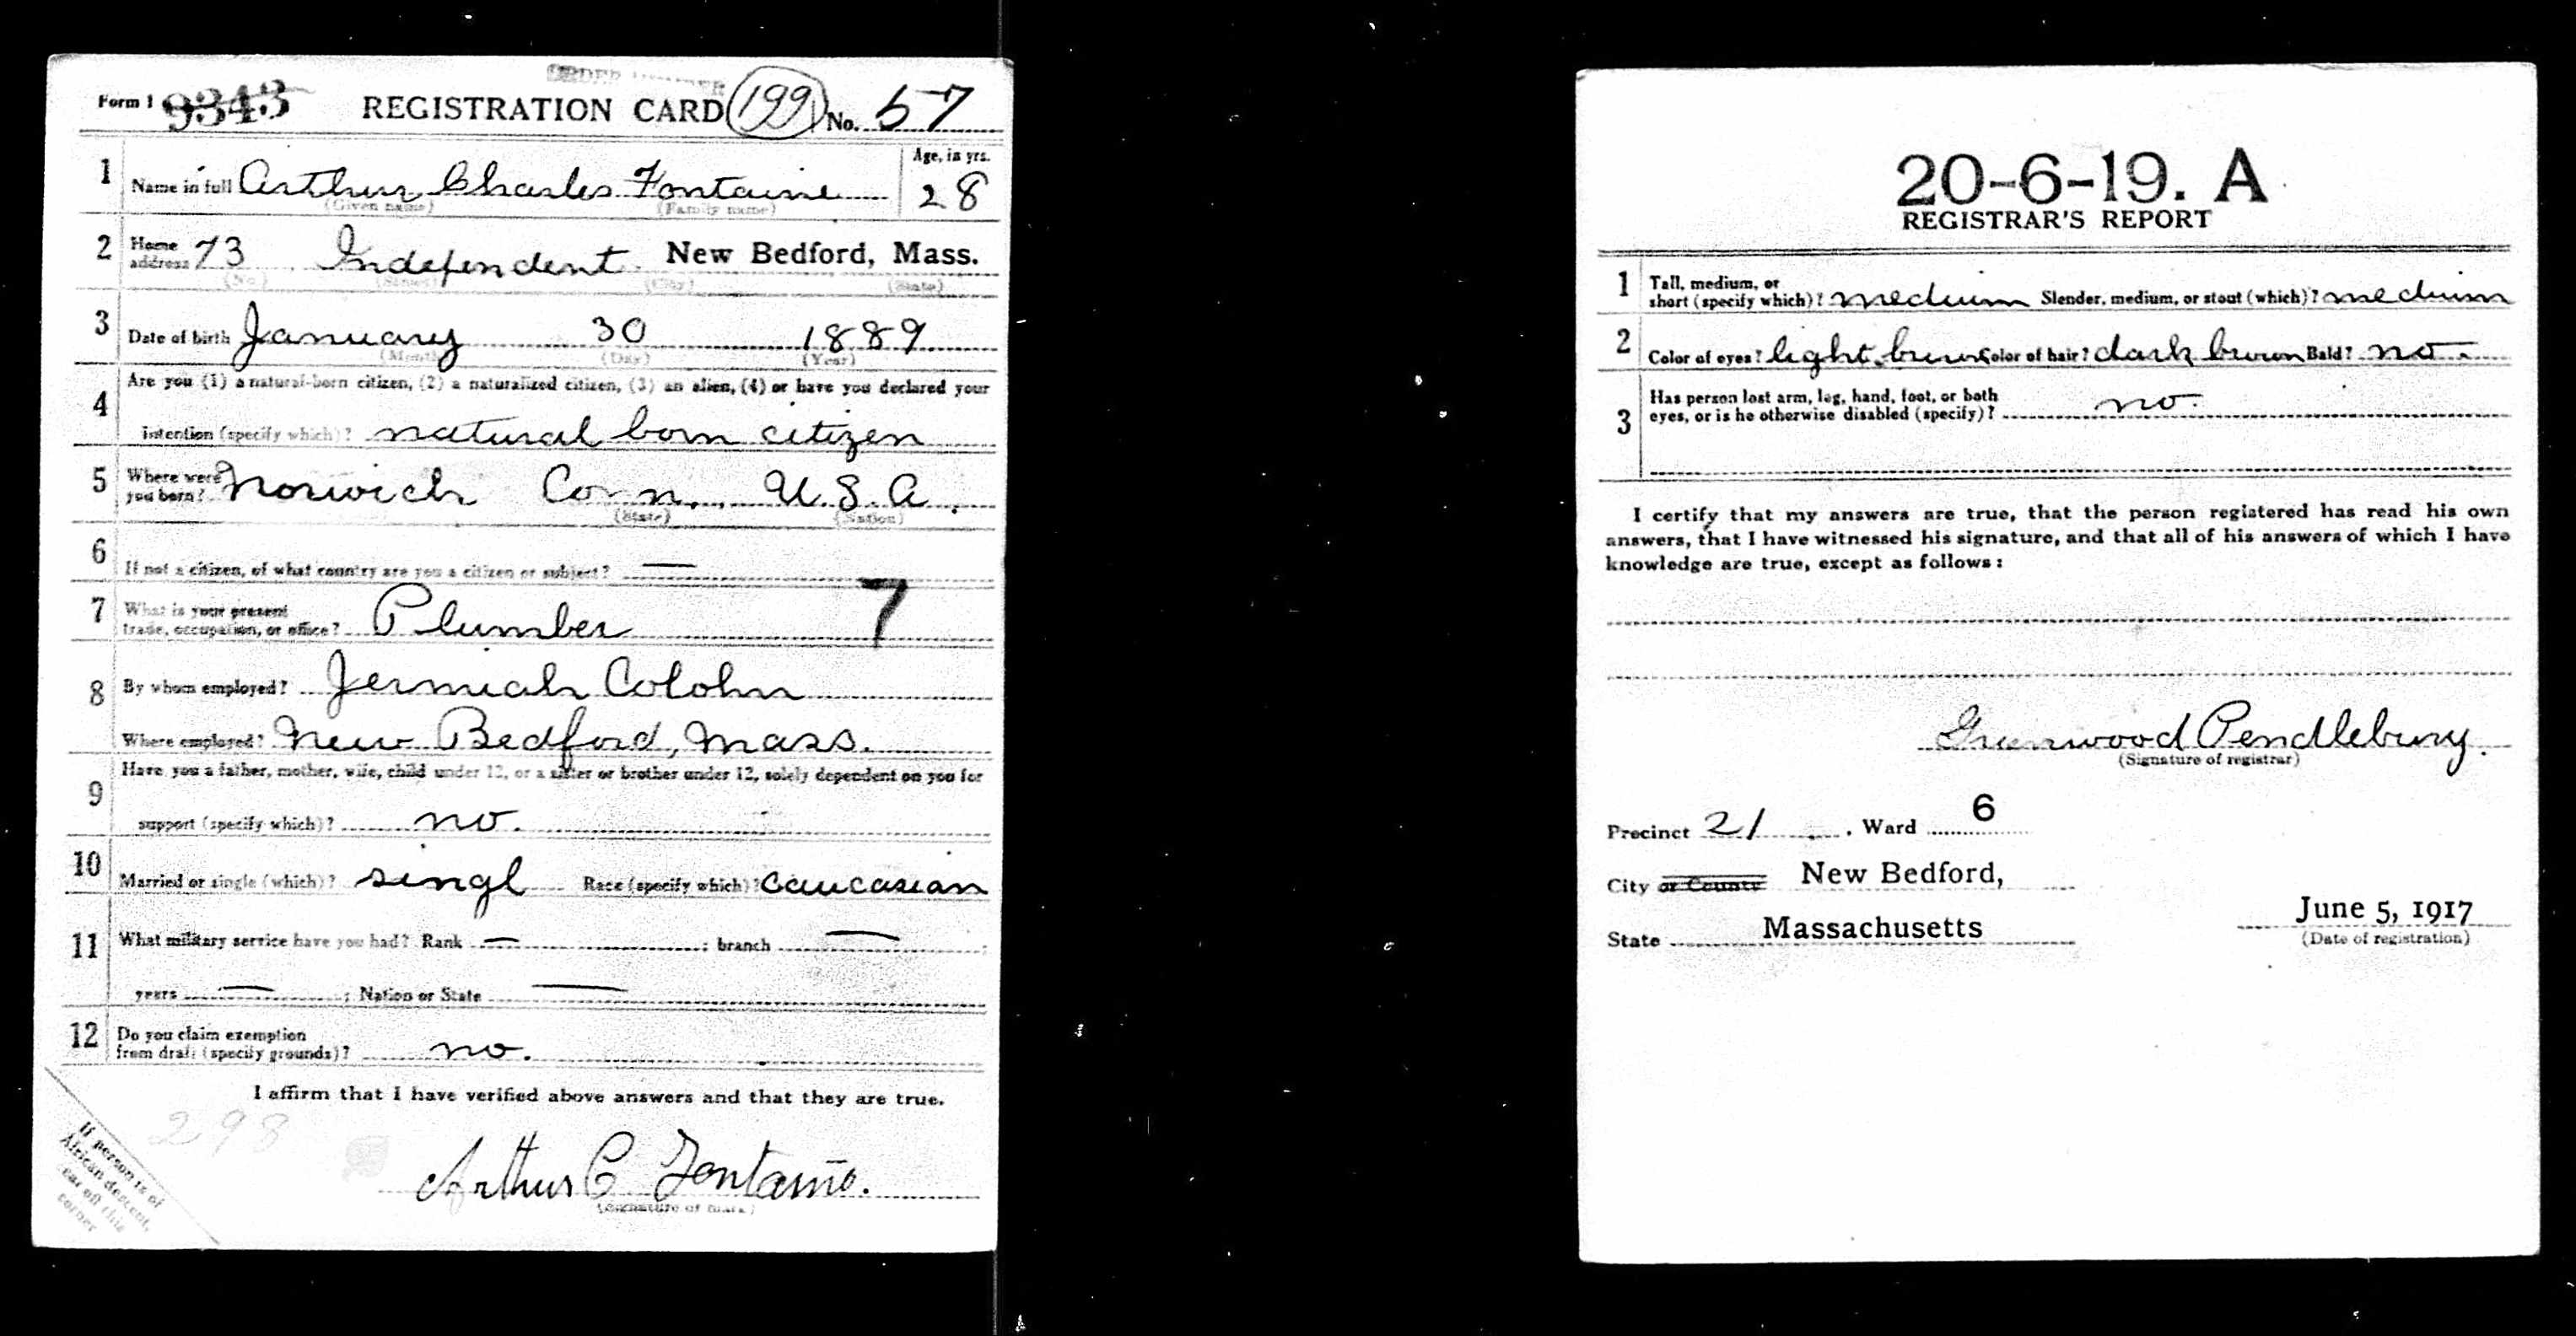 ORDER NUMBER
Form 1 9343 REGISTRATION CARD 199 No. 57
1 Name in full Arthur Charles Fontaine Age, in yrs. 28
(Given name) (Family name)
2 Home address 73 Independent New Bedford, Mass.
(No.) (Street) (City) (State)
3 Date of birth January 30 1889
(Month) (Day) (Year)
4 Are you (1) a natural-born citizen, (2) a naturalized citizen, (3) an alien, (4) or have you declared your
intention (specify which)? natural born citizen
5 Where were you born? Norwich Conn. U.S.A.
(State) (Nation)
6 If not a citizen, of what country are you a citizen or subject? —
7 What is your present trade, occupation, or office? Plumber 7
8 By whom employed? Jermiah Colohn
Where employed? New Bedford, Mass.
9 Have you a father, mother, wife, child under 12, or a sister or brother under 12, solely dependent on you for
support (specify which)? no.
10 Married or single (which)? singl Race (specify which)? Caucasian
11 What military service have you had? Rank — ; branch — ;
years — ; Nation or State —
12 Do you claim exemption from draft (specify grounds)? no.
I affirm that I have verified above answers and that they are true.
298
Arthur C Fontaine.
(Signature or mark)
If person is of
African descent,
tear off this
corner
20-6-19. A
REGISTRAR'S REPORT
1 Tall, medium, or
short (specify which)? medium Slender, medium, or stout (which)? medium
2 Color of eyes? light brown Color of hair? dark brown Bald? no.
3 Has person lost arm, leg, hand, foot, or both
eyes, or is he otherwise disabled (specify)? no.
I certify that my answers are true, that the person registered has read his own
answers, that I have witnessed his signature, and that all of his answers of which I have
knowledge are true, except as follows:
Greenwood Pendlebury.
(Signature of registrar)
Precinct 21 . Ward 6
City or County New Bedford,
State Massachusetts
June 5, 1917
(Date of registration)